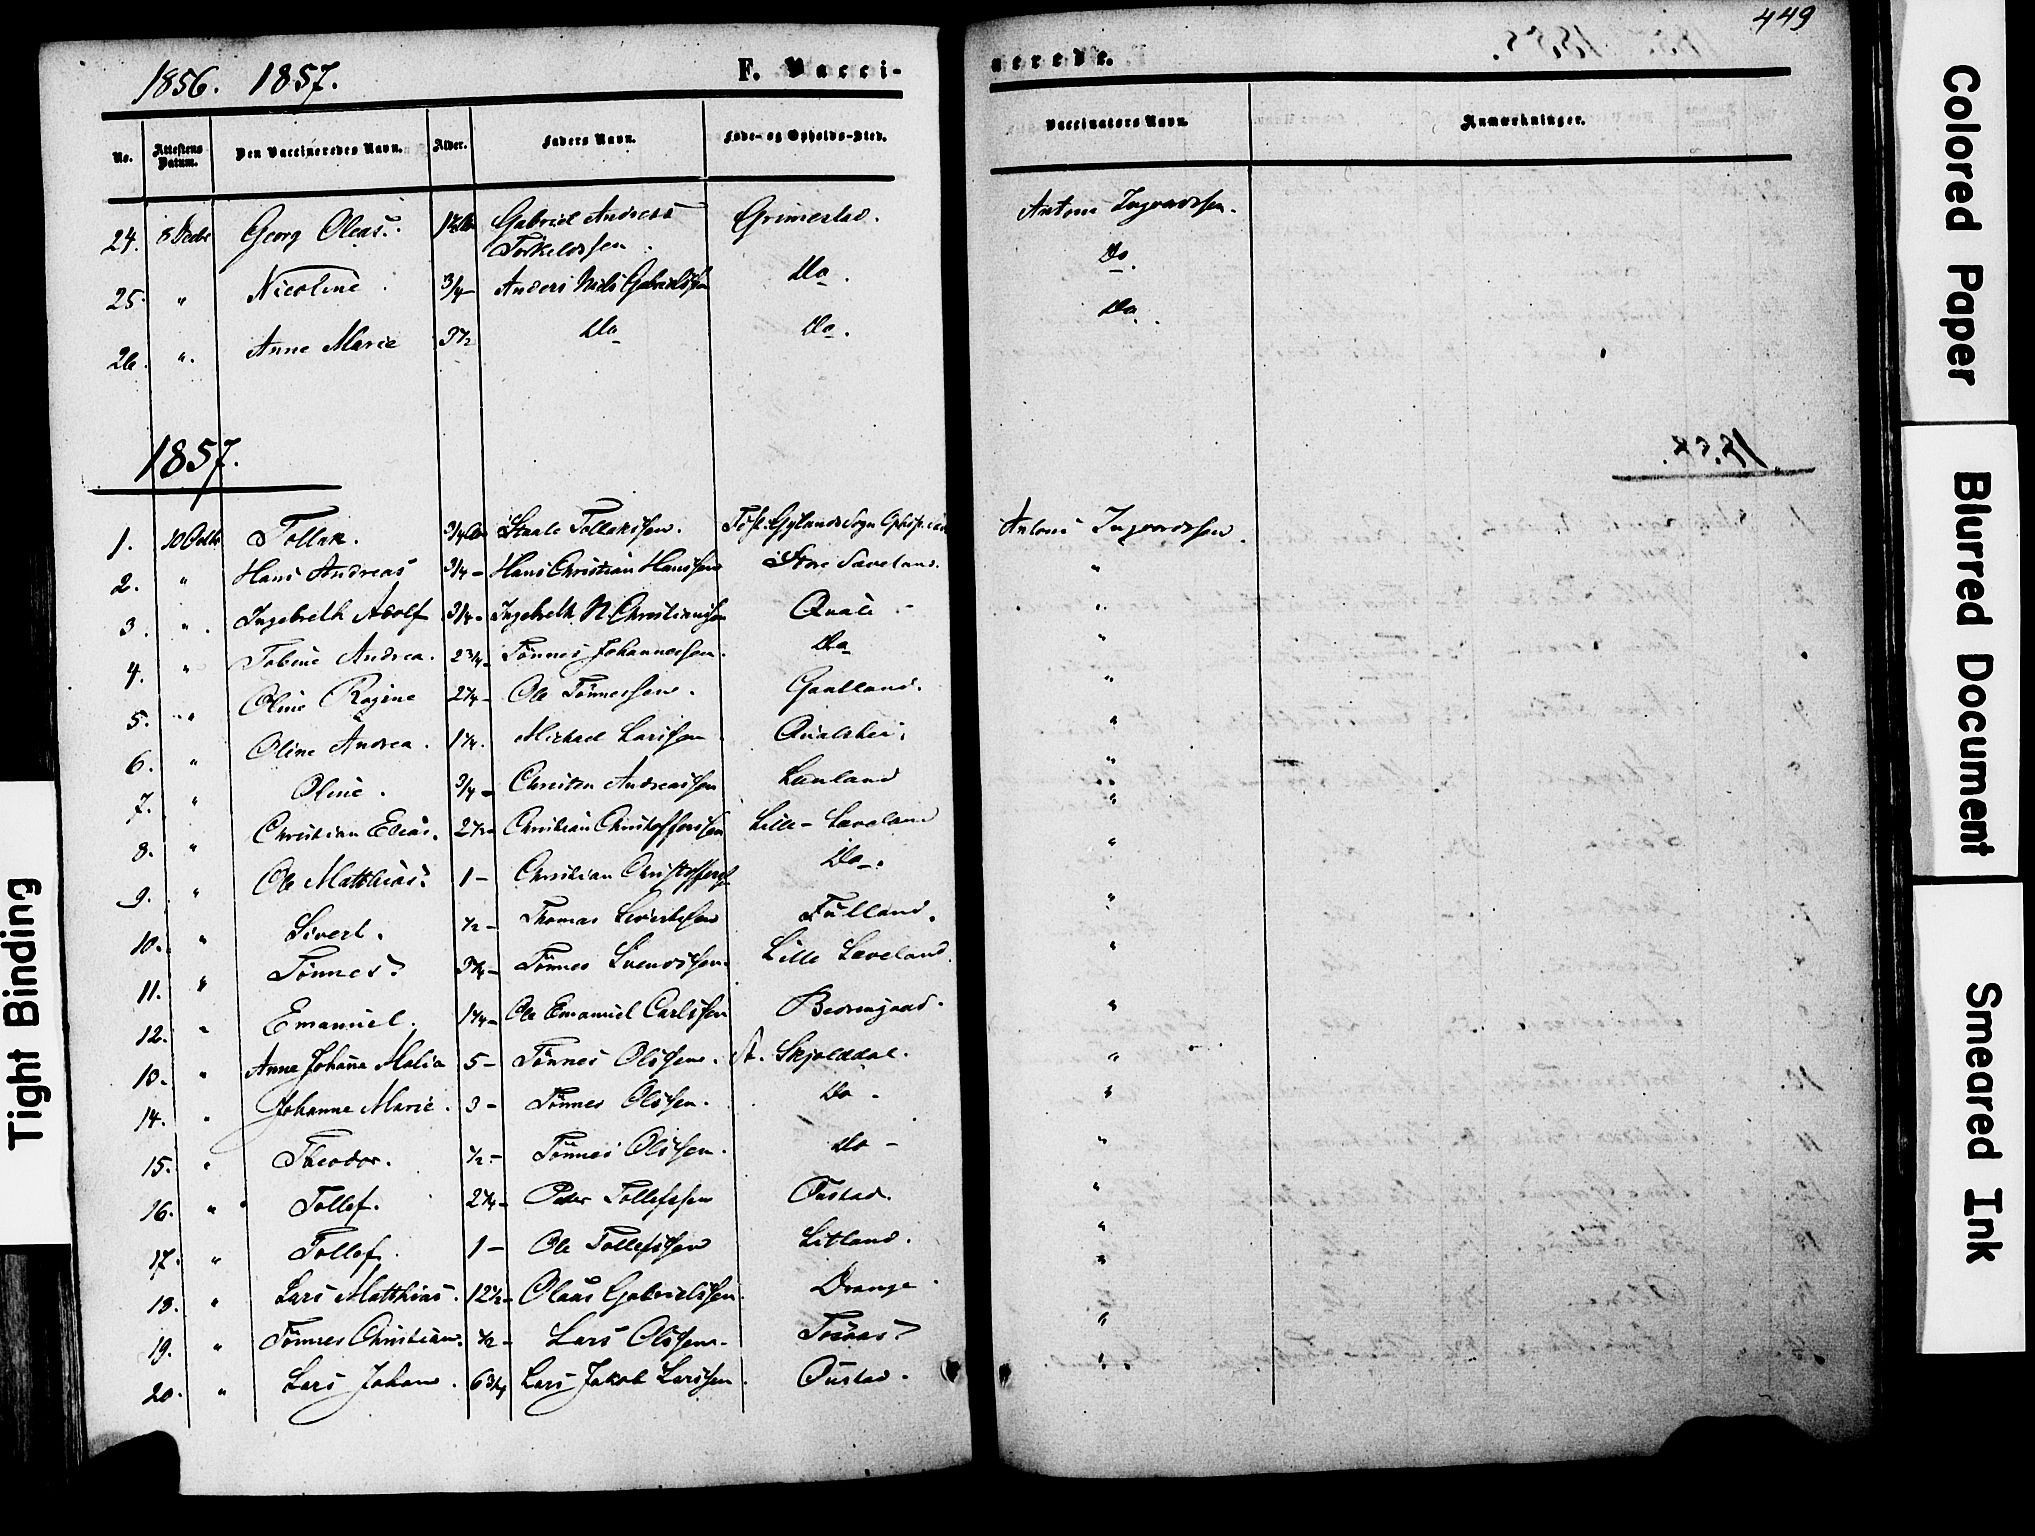 449
1856. 1857.
F. Vacci-
nerede.
No.
Attestens Datum.
Den Vaccineredes Navn.
Alder.
Faders Navn.
Føde- og Opholds-Sted.
Vaccinators Navn.
Anmærkninger.
24. 8 Decbr Georg Oleas. Gabriel Andreas Torkeldssen Grimestad. Antoni Ingvardssen.
25. " Nicoline. 3/4 - Anders Niels Gabrielssen Do. Do.
26. " Anne Marie 3 1/2 Do Do. Do.
1857.
1. 10 Octbr Tollak. 3/4 Staale Tollakssen. Gylands Sogn Antoni Ingvardssen.
2. " Hans Andreas 3/4 - Hans Christian Hanssen Store Laveland. "
3. " Ingebreth Adolf 3/4 - Ingebreth N. Christianssen Qvåle - "
4. " Tobine Andrea. 2 3/4 - Tønnes Johannessen. Do "
5. " Oline Regine 2 1/4 - Ole Tønnessen. "
6. " Oline Andrea. 1 1/4. Michael Larssen. "
7. " Oline. 3/4 - Christen Andreassen "
8. " Christian Elias. 2 1/2 - Christian Christofferssen Lille - Laveland "
9. " Ole Matthias. 1 - Christian Christofferss. Do. "
10. " Sivert. 1/2 - Thomas Sivertssen "
11. " Tønnes. Tønnes Svendssen. Lille Laveland. "
12. " Emanuel. 1 1/4 - Ole Emanuel Carlssen "
13. " Anne Johanne Malia 5 - Tønnes Olssen. St. Skjolddal. "
14. " Johanne Marie. 3 - Tønnes Olssen. Do - "
15. " Theodor. 1/2 - Tønnes Olssen. Do - "
16. " Tollef. 2 1/4 - Peder Tollefssen Øustad. "
17. " Tollef. 1 - Ole Tollefssen Litland. "
18. " Lars Matthias. 12 1/2 - Olaus Gabrielssen. Drange "
19. " Tønnes Christian. 1/2 - Lars Olssen. "
20. " Lars Johan. 6 3/4 Lars Jakob Larssen. Øustad. "
Colored Paper
Blurred Document
Smeared Ink
Tight Binding